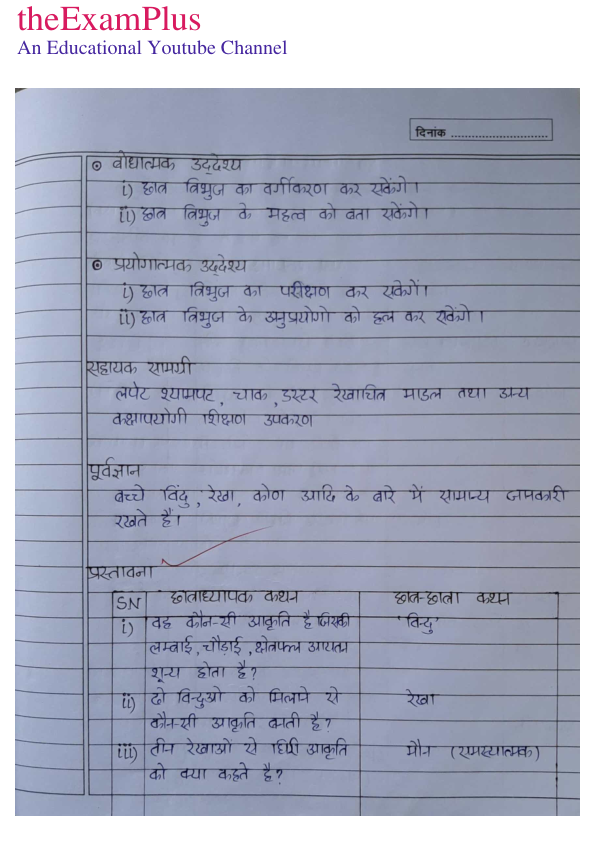 theExamPlus
An Educational Youtube Channel
दिनांक ............................
बोधात्मक उद्देश्य
i) छात्र त्रिभुज का वर्गीकरण कर सकेंगे।
ii) छात्र त्रिभुज के महत्व को बता सकेंगे।
प्रयोगात्मक उद्देश्य
i) छात्र त्रिभुज का परीक्षण कर सकेगें।
ii) छात्र त्रिभुज के अनुप्रयोगो को हल कर सकेंगे।
सहायक सामग्री
लपेट श्यामपट, चाक, डस्टर रेखाचित्र माडल तथा अन्य
कक्षापयोगी शिक्षण उपकरण
पूर्वज्ञान
बच्चे विंदु, रेखा, कोण आदि के बारे में सामान्य जानकारी
रखते हैं।
प्रस्तावना
SN छात्राध्यापक कथन छात्र-छात्रा कथन
i) वह कौन-सी आकृति है जिसकी 'विन्दु'
लम्बाई, चौड़ाई, क्षेत्रफल आयतन
शून्य होता है?
ii) दो विन्दुओ को मिलाने से रेखा
कौन-सी आकृति बनती है?
iii) तीन रेखाओं से घिरी आकृति मौन (समस्यात्मक)
को क्या कहते है?